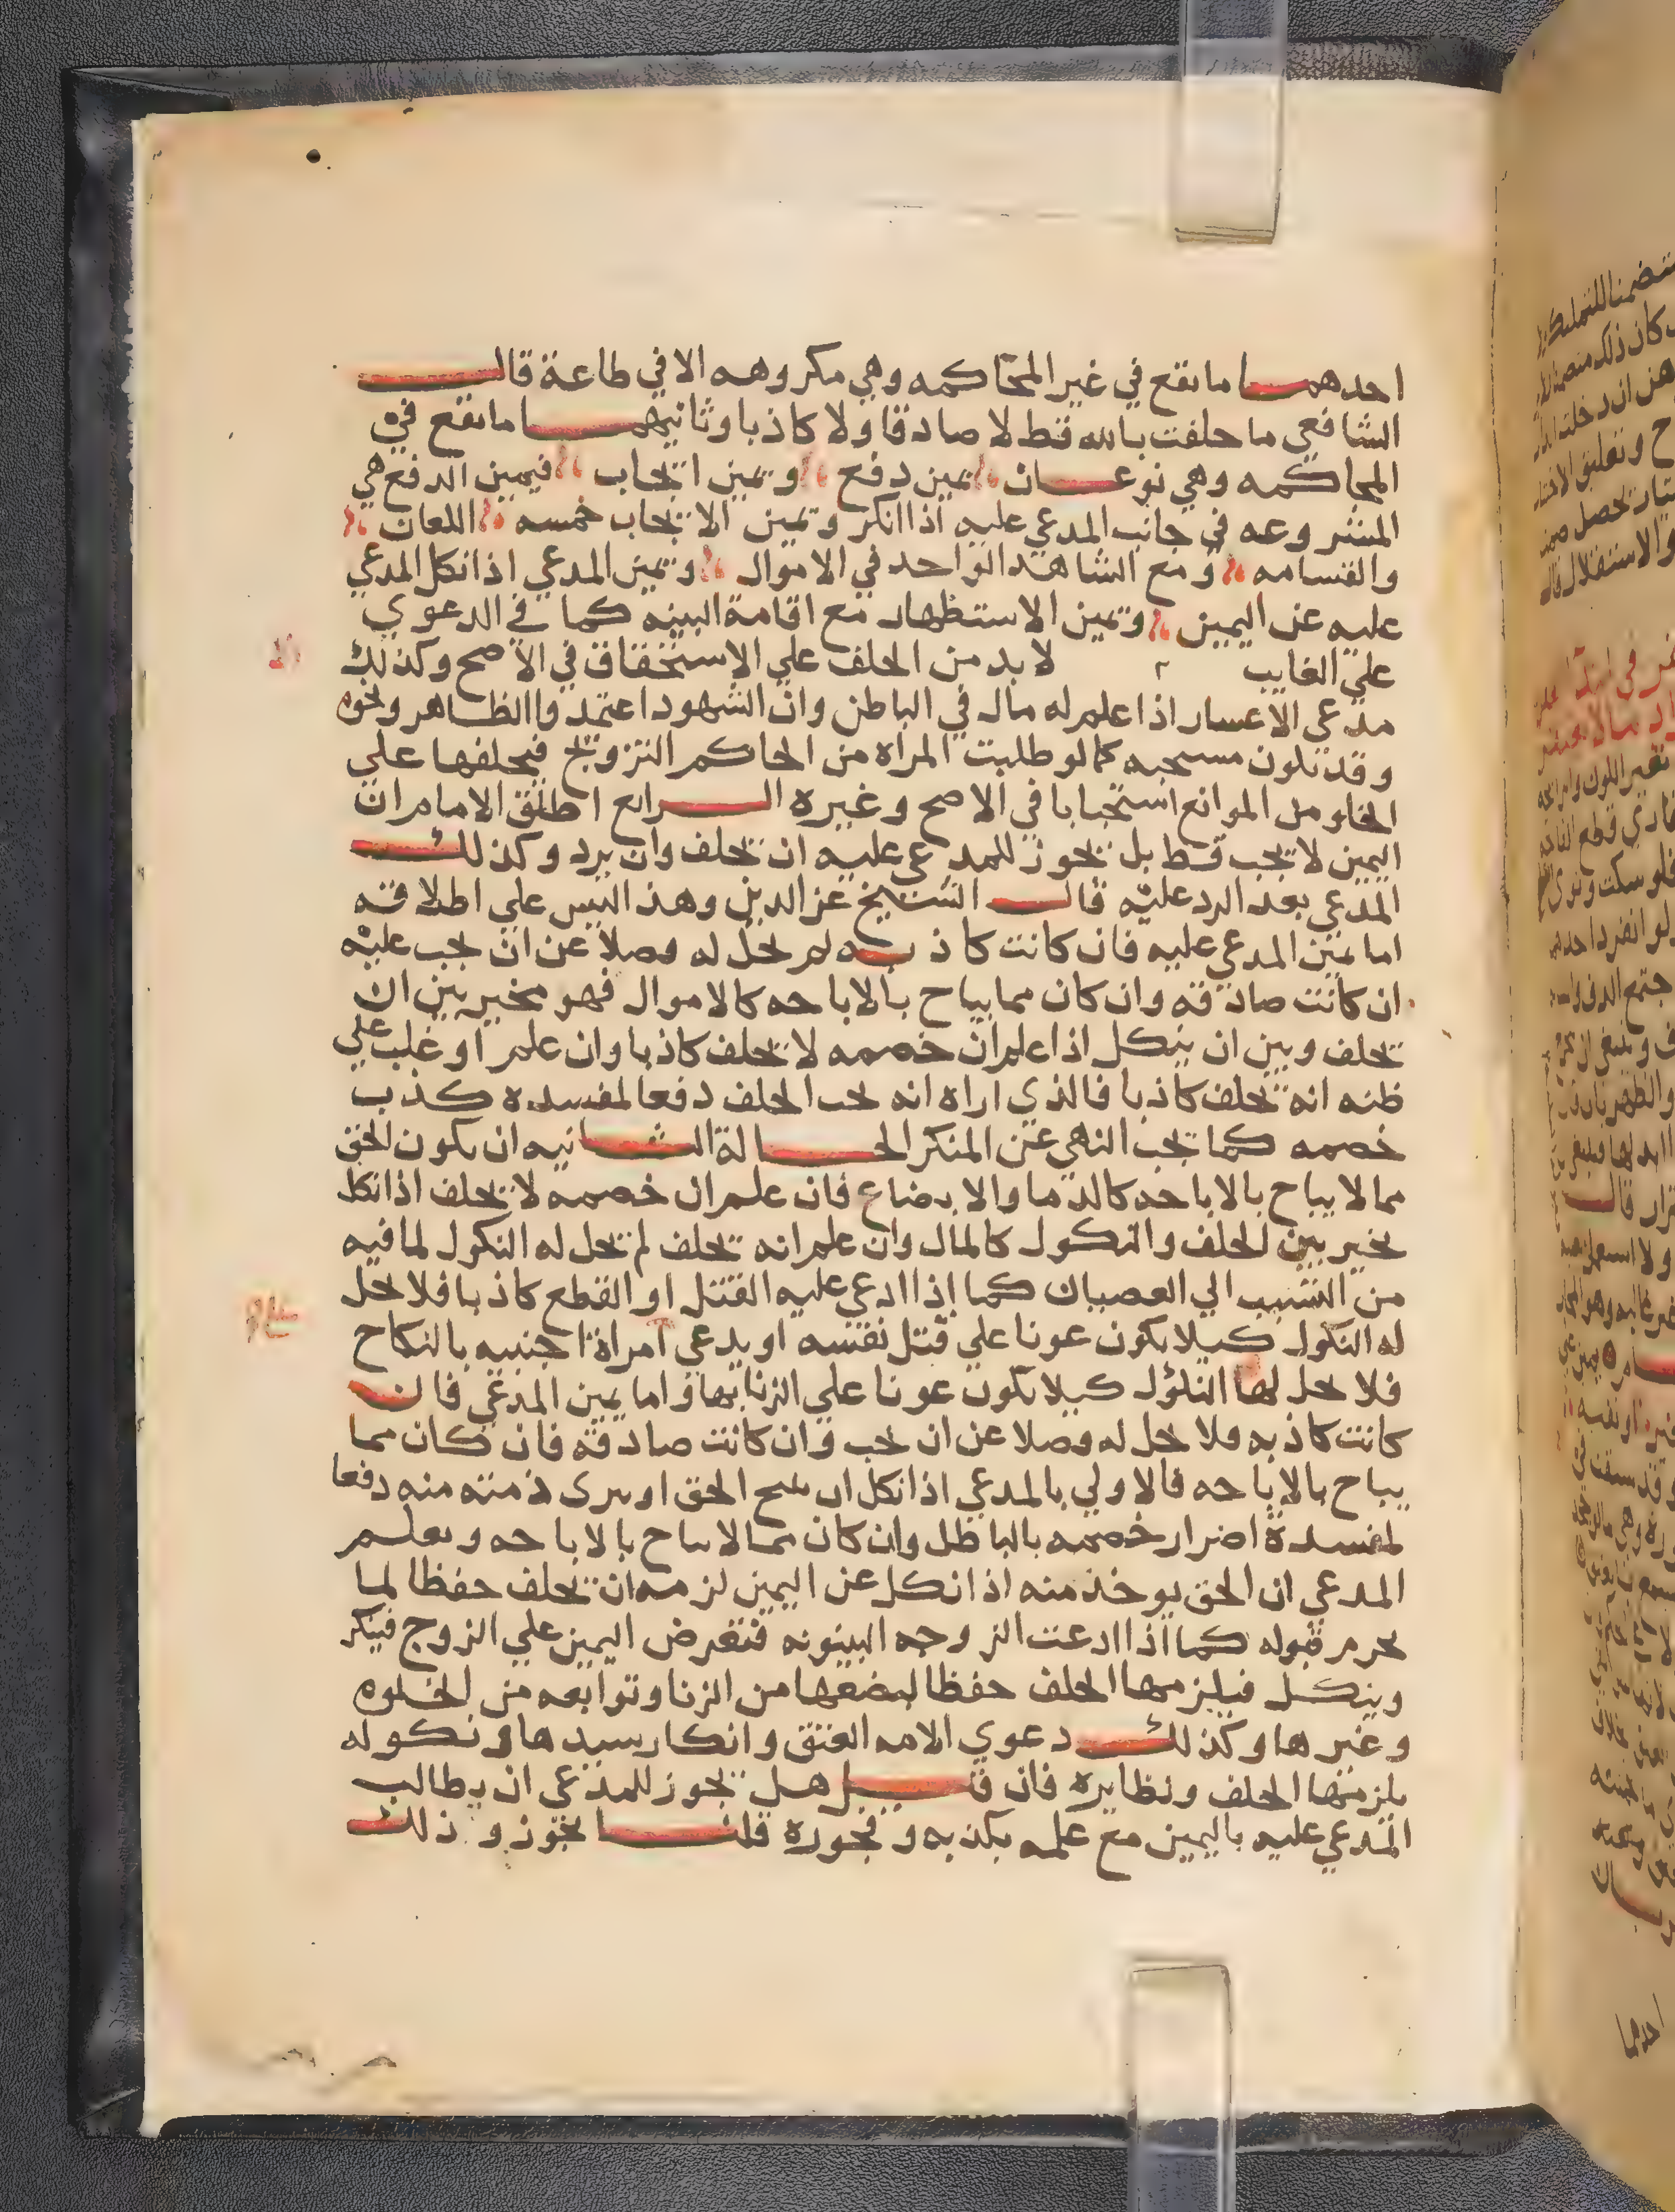 احدهما ما يقع في غير المحاكمه وهي مكروهه الا في طاعة قال
الشافعي ما حلفت بالله قط لا صادقا ولا كاذبا وثانيهما ما يقع في
المحاكمه وهي نوعان يمين دفع ويمين ايجاب فيمين الدفع هي
المشروعه في جانب المدعي عليه اذا انكر ويمين الايجاب خمسه اللعان
والقسامه ومع الشاهد الواحد في الاموال ويمين المدعي اذا نكل المدعي
عليه عن اليمين ويمين الاستظهار مع اقامة البينه كما في الدعوي
علي الغايب لا بد من الحلف علي الاستحقاق في الاصح وكذلك
مدعي الاعسار اذا علم له مال في الباطن وان الشهود اعتمدوا الظاهر ونحوه
وقد تكون مستحبه كما لو طلبت المراه من الحاكم التزويج فيحلفها علي
الخلو من الموانع استحبابا في الاصح وغيره الرابع اطلق الامام ان
اليمين لا تجب قط بل يجوز للمدعي عليه ان يحلف وان يرد وكذلك
المدعي بعد الرد عليه قال الشيخ عز الدين وهذا ليس علي اطلاقه
اما يمين المدعي عليه فان كانت كاذبه لم يحل له فضلا عن ان يجب عليه
ان كانت صادقه وان كان مما يباح بالاباحه كالاموال فهو مخير بين ان
يحلف وبين ان ينكل اذا علم ان خصمه لا يحلف كاذبا وان علم او غلب علي
ظنه انه يحلف كاذبا فالذي اراه انه يجب الحلف دفعا لمفسدة كذب
خصمه كما يجب النهي عن المنكر الحالة الثانيه ان يكون الحق
مما لا يباح بالاباحه كالدما والابضاع فان علم ان خصمه لا يحلف اذا نكل
تخير بين الحلف والنكول كالمال وان علم انه يحلف لم يحل له النكول لما فيه
من التسبب الي العصيان كما إذا ادعي عليه القتل او القطع كاذبا فلا يحل
له النكول كيلا يكون عونا علي قتل نفسه او يدعي امراة اجنبيه بالنكاح
فلا يحل لها النكول كيلا تكون عونا علي الزنا بها واما يمين المدعي فان
كانت كاذبه فلا يحل له فضلا عن ان يجب وان كانت صادقه فان كان مما
يباح بالاباحه فالاولي بالمدعي اذا نكل ان يبيح الحق او يبرى ذمته منه دفعا
لمفسدة اضرار خصمه بالباطل وان كان مما لا يباح بالاباحه ويعلم
المدعي ان الحق يوخذ منه اذا نكل عن اليمين لزمه ان يحلف حفظا لما
يحرم قبوله كما اذا ادعت الزوجه البينونه فتعرض اليمين علي الزوج فينكر
وينكل فيلزمها الحلف حفظا لبضعها من الزنا وتوابعه من الخلوه
وغيرها وكذلك دعوي الامه العتق وانكار سيدها ونكوله
يلزمها الحلف ونظايره فان قيل هل يجوز للمدعي ان يطالب
المدعي عليه باليمين مع علمه بكذبه وفجوره قلنا يجوز وذلك